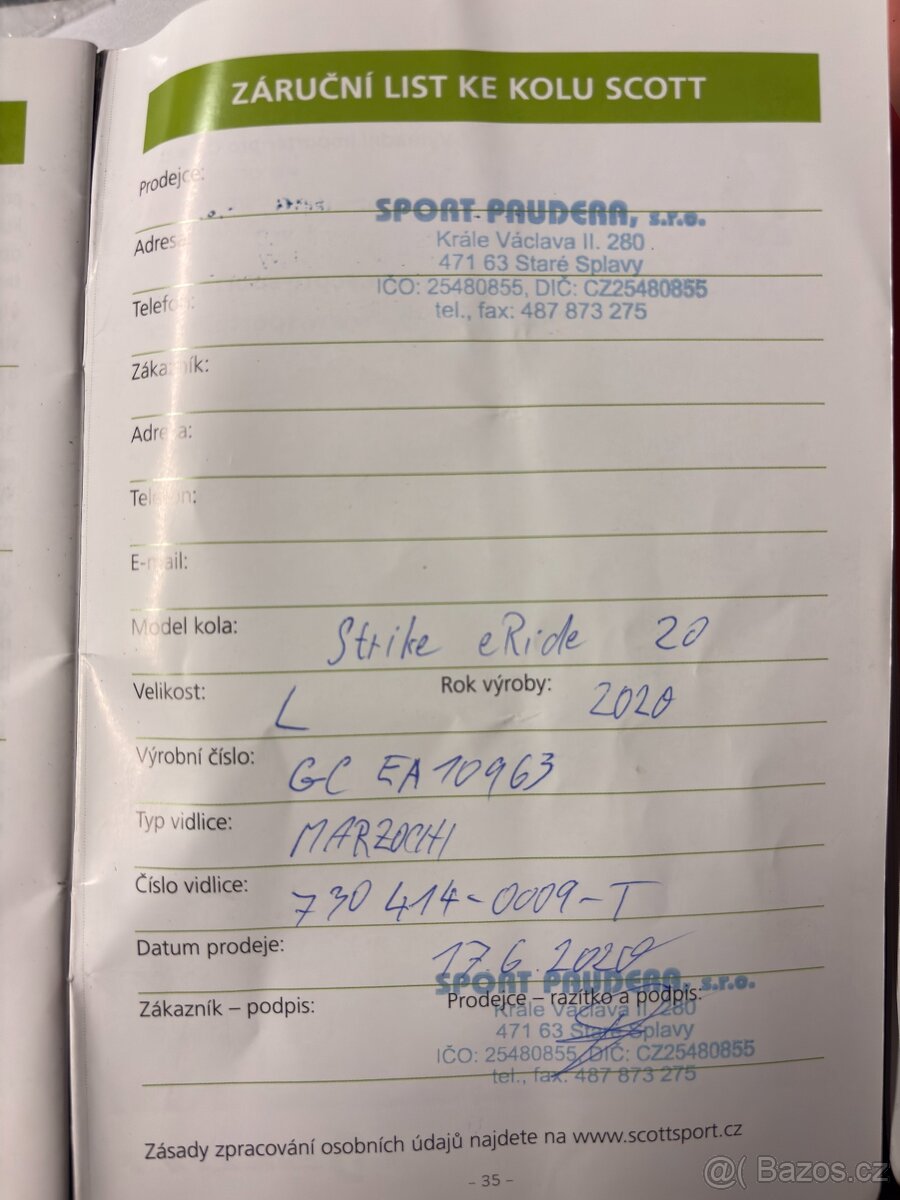 ZÁRUČNÍ LIST KE KOLU SCOTT
Prodejce:
SPORT PAUDERA, s.r.o.
Adresa:
Krále Václava II. 280
471 63 Staré Splavy
Telefon:
IČO: 25480855, DIČ: CZ25480855
tel., fax: 487 873 275
Zákazník:
Adresa:
Telefon:
E-mail:
Model kola: Strike eRide 20
Velikost: L Rok výroby: 2020
Výrobní číslo: GC EA10963
Typ vidlice: MARZOCHI
Číslo vidlice: 730 414-0009-T
Datum prodeje: 17.6.2020
SPORT PAUDERA, s.r.o.
Zákazník – podpis: Prodejce – razítko a podpis:
Krále Václava II. 280
471 63 Staré Splavy
IČO: 25480855, DIČ: CZ25480855
tel., fax: 487 873 275
Zásady zpracování osobních údajů najdete na www.scottsport.cz
- 35 -
@( Bazos.cz